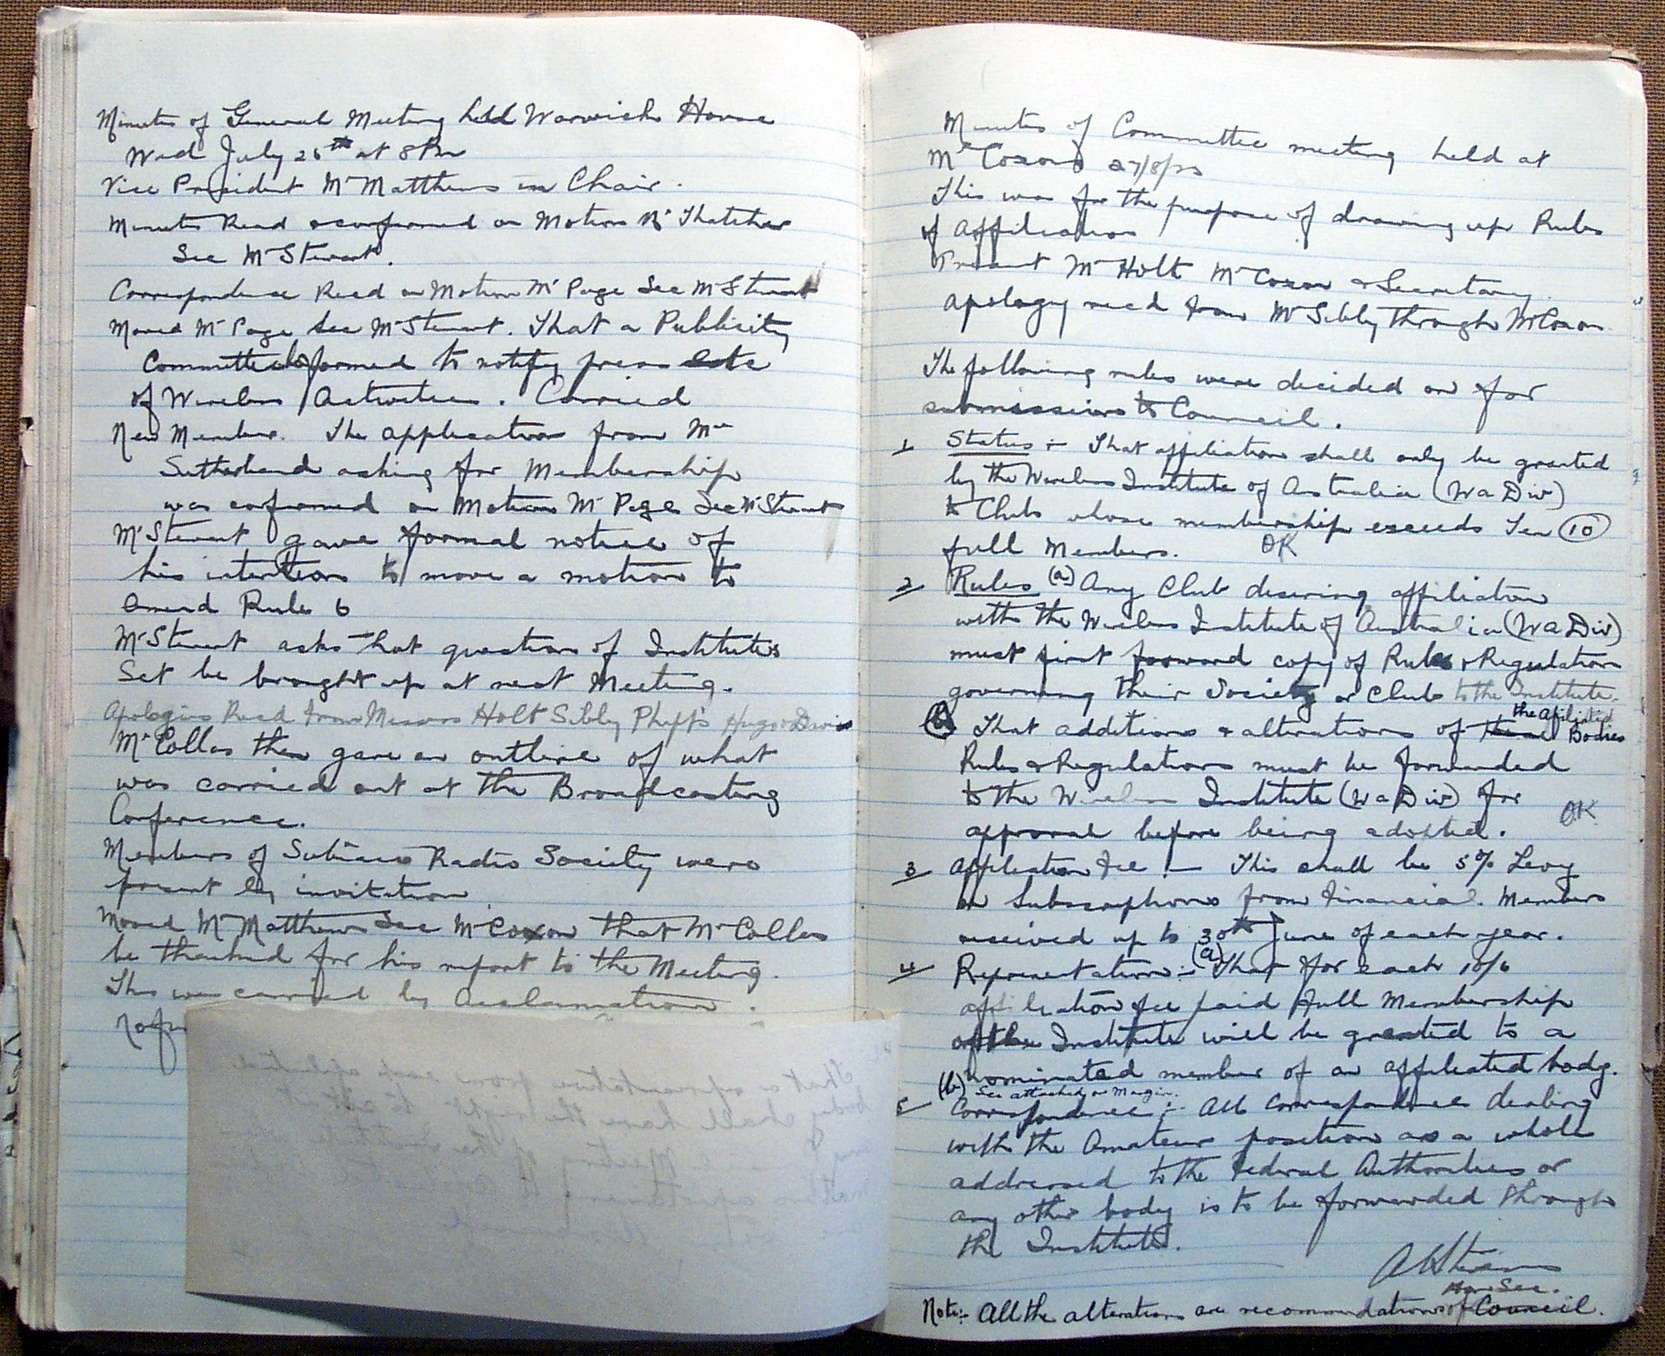 Minutes of General Meeting held Warwick House
Wed July 25th at 8 Pm
Vice President Mr Matthews in Chair.
Minutes Read & confirmed on Motion Mr Thatcher
Sec Mr Stewart.
Correspondence Read on Motion Mr Page Sec Mr Stewart
Moved Mr Page Sec Mr Stewart. That a Publicity
Committee be formed to notify press
of Wireless Activities. Carried
New Member. The application from Mr
Sutherland asking for Membership
was confirmed on Motion Mr Page Sec Mr Stewart
Mr Stewart gave formal notice of
his intention to move a motion to
amend Rule 6
Mr Stewart asks that question of Institute's
Set be brought up at next Meeting.
Apologies Read from Messrs Holt Sibly Phipps Hugo & Davies
Mr Coxon then gave an outline of what
was carried out at the Broadcasting
Conference.
Members of Subiaco Radio Society were
present by invitation
Moved Mr Matthews Sec Mr Coxon that Mr
be thanked for his report to the Meeting.
This was carried by Acclamation.
Minutes of Committee meeting held at
Mr Coxons 27/8/
This was for the purpose of drawing up Rules
of Affiliation
Present Mr Holt Mr Coxon & Secretary.
Apology recd from Mr Sibly through Mr Coxon
The following rules were decided on for
submission to Council.
1 Status :- That affiliation shall only be granted
by the Wireless Institute of Australia (W a Div)
to Clubs whose membership exceeds Ten (10)
full Members. OK
2 Rules (a) Any Club desiring affiliation
with the Wireless Institute of Australia (W a Div)
must first forward copy of Rules & Regulation
governing their Society or Club to the Institute.
(b) That additions & alterations of the Afiliated Bodies
Rules & Regulations must be forwarded
to the Wireless Institute (W a Div) for
approval before being adopted. OK
3 Affiliation Fee :- This shall be 5% Levy
on Subscriptions from Financial Members
received up to 30th June of each year.
4 Representation :- (a) That for each 10/6
affiliation fee paid full Membership
of the Institute will be granted to a
nominated member of an affiliated body.
(b) See attached or Margin.
5 Correspondence :- All Correspondence dealing
with the Amateur position as a whole
addressed to the Federal Authorities or
any other body is to be forwarded through
the Institute.
Hon Sec.
Note:- All the alterations are recommendations of Council.